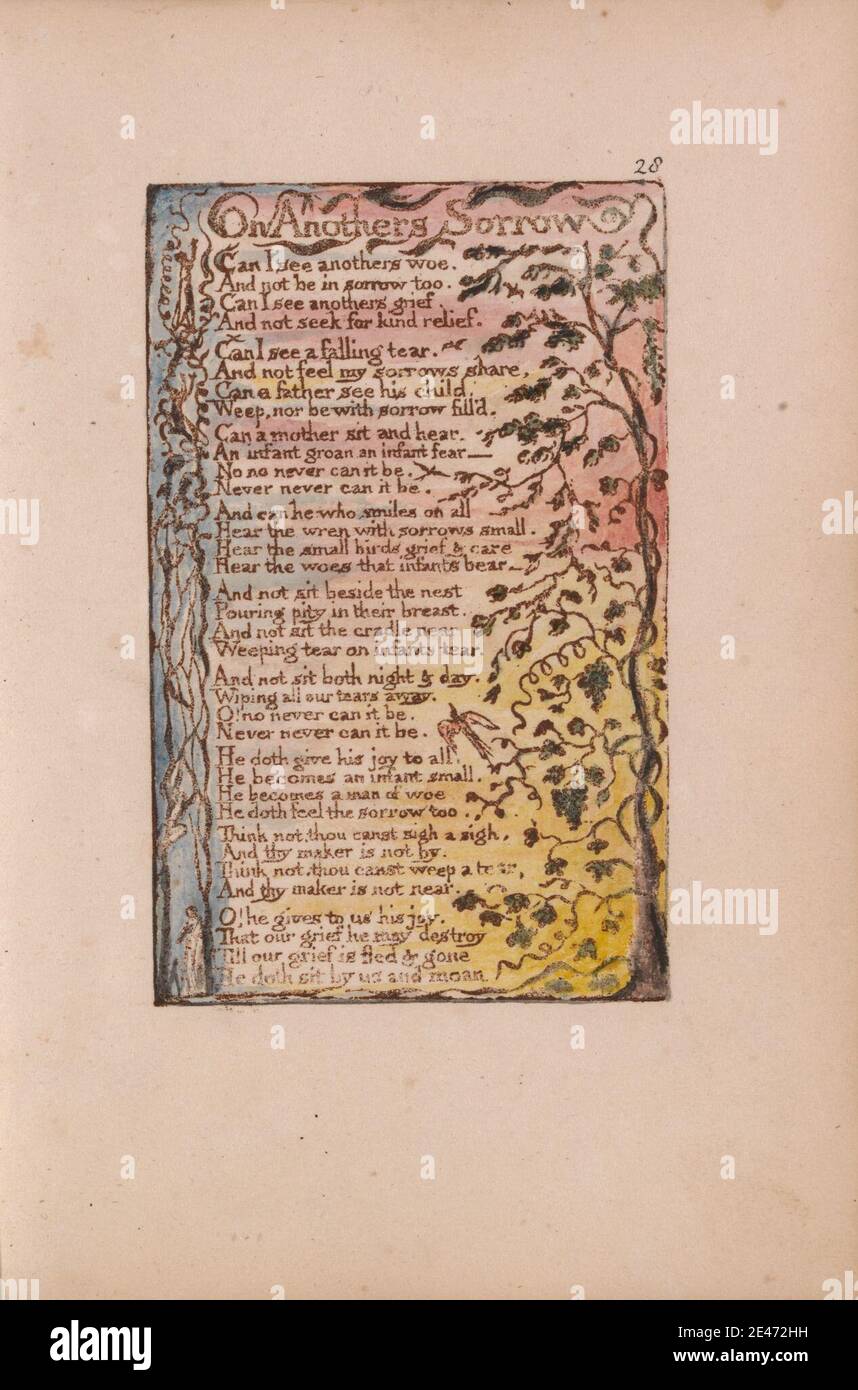 28
On Anothers Sorrow
Can I see anothers woe.
And not be in sorrow too.
Can I see anothers grief.
And not seek for kind relief.
Can I see a falling tear.
And not feel my sorrows share,
Can a father see his child.
Weep, nor be with sorrow fill'd.
Can a mother sit and hear.
An infant groan an infant fear—
No no never can it be.
Never never can it be.
And can he who smiles on all
Hear the wren with sorrows small.
Hear the small birds grief & care
Hear the woes that infants bear—
And not sit beside the nest
Pouring pity in their breast.
And not sit the cradle near
Weeping tear on infants tear.
And not sit both night & day.
Wiping all our tears away.
O! no never can it be.
Never never can it be.
He doth give his joy to all.
He becomes an infant small.
He becomes a man of woe
He doth feel the sorrow too.
Think not, thou canst sigh a sigh,
And thy maker is not by.
Think not, thou canst weep a tear,
And thy maker is not near.
O! he gives to us his joy.
That our grief he may destroy
Till our grief is fled & gone
He doth sit by us and moan
alamy
a
alamy
Image ID: 2E472HH
www.alamy.com